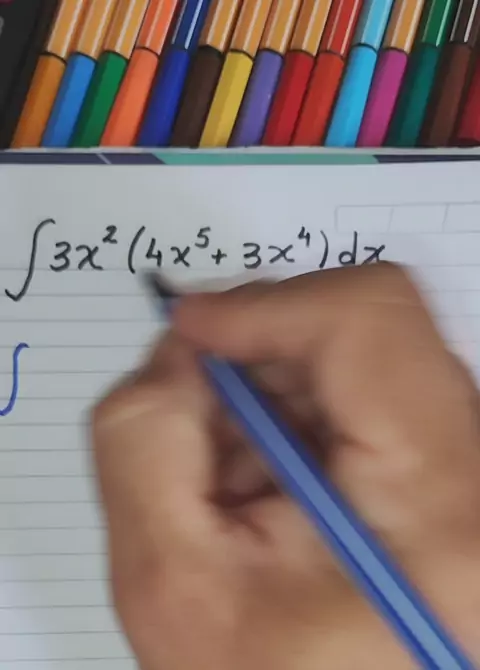 ∫3x²(4x⁵+ 3x⁴)dx
∫